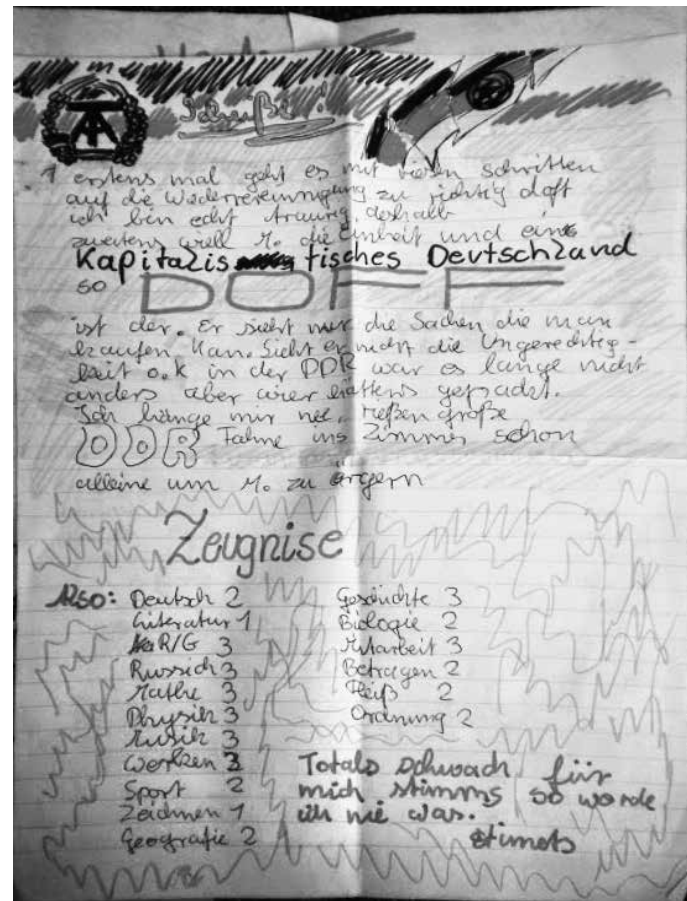 Scheiße!
1 erstens mal geht es mit riesen schritten
auf die Wiedervereinnigung zu richtig doft
ich bin echt traurig, deshalb
zweitens will M. die Einheit und eins
Kapitalis tisches Deutschland
so DOFF
ist der. Er sieht nur die Sachen die man
kaufen kan. Sieht er nicht die Ungerechtig-
keit o.k in der DDR war es lange nicht
anders aber wier hättens gepackt.
Ich hänge mir ne, rießen große
DDR Fahne ins Zimmer schon
alleine um M. zu ärgern
Zeugnise
Also: Deutsch 2
Literatur 1
R/G 3
Russich 3
Mathe 3
Physik 3
Musik 3
Werken 3
Sport 2
Zeichnen 1
Geografie 2
Geschichte 3
Biologie 2
Mitarbeit 3
Betragen 2
Fleiß 2
Ordnung 2
Totals schwach für
mich stimms so werde
ich nie was.
stimmts